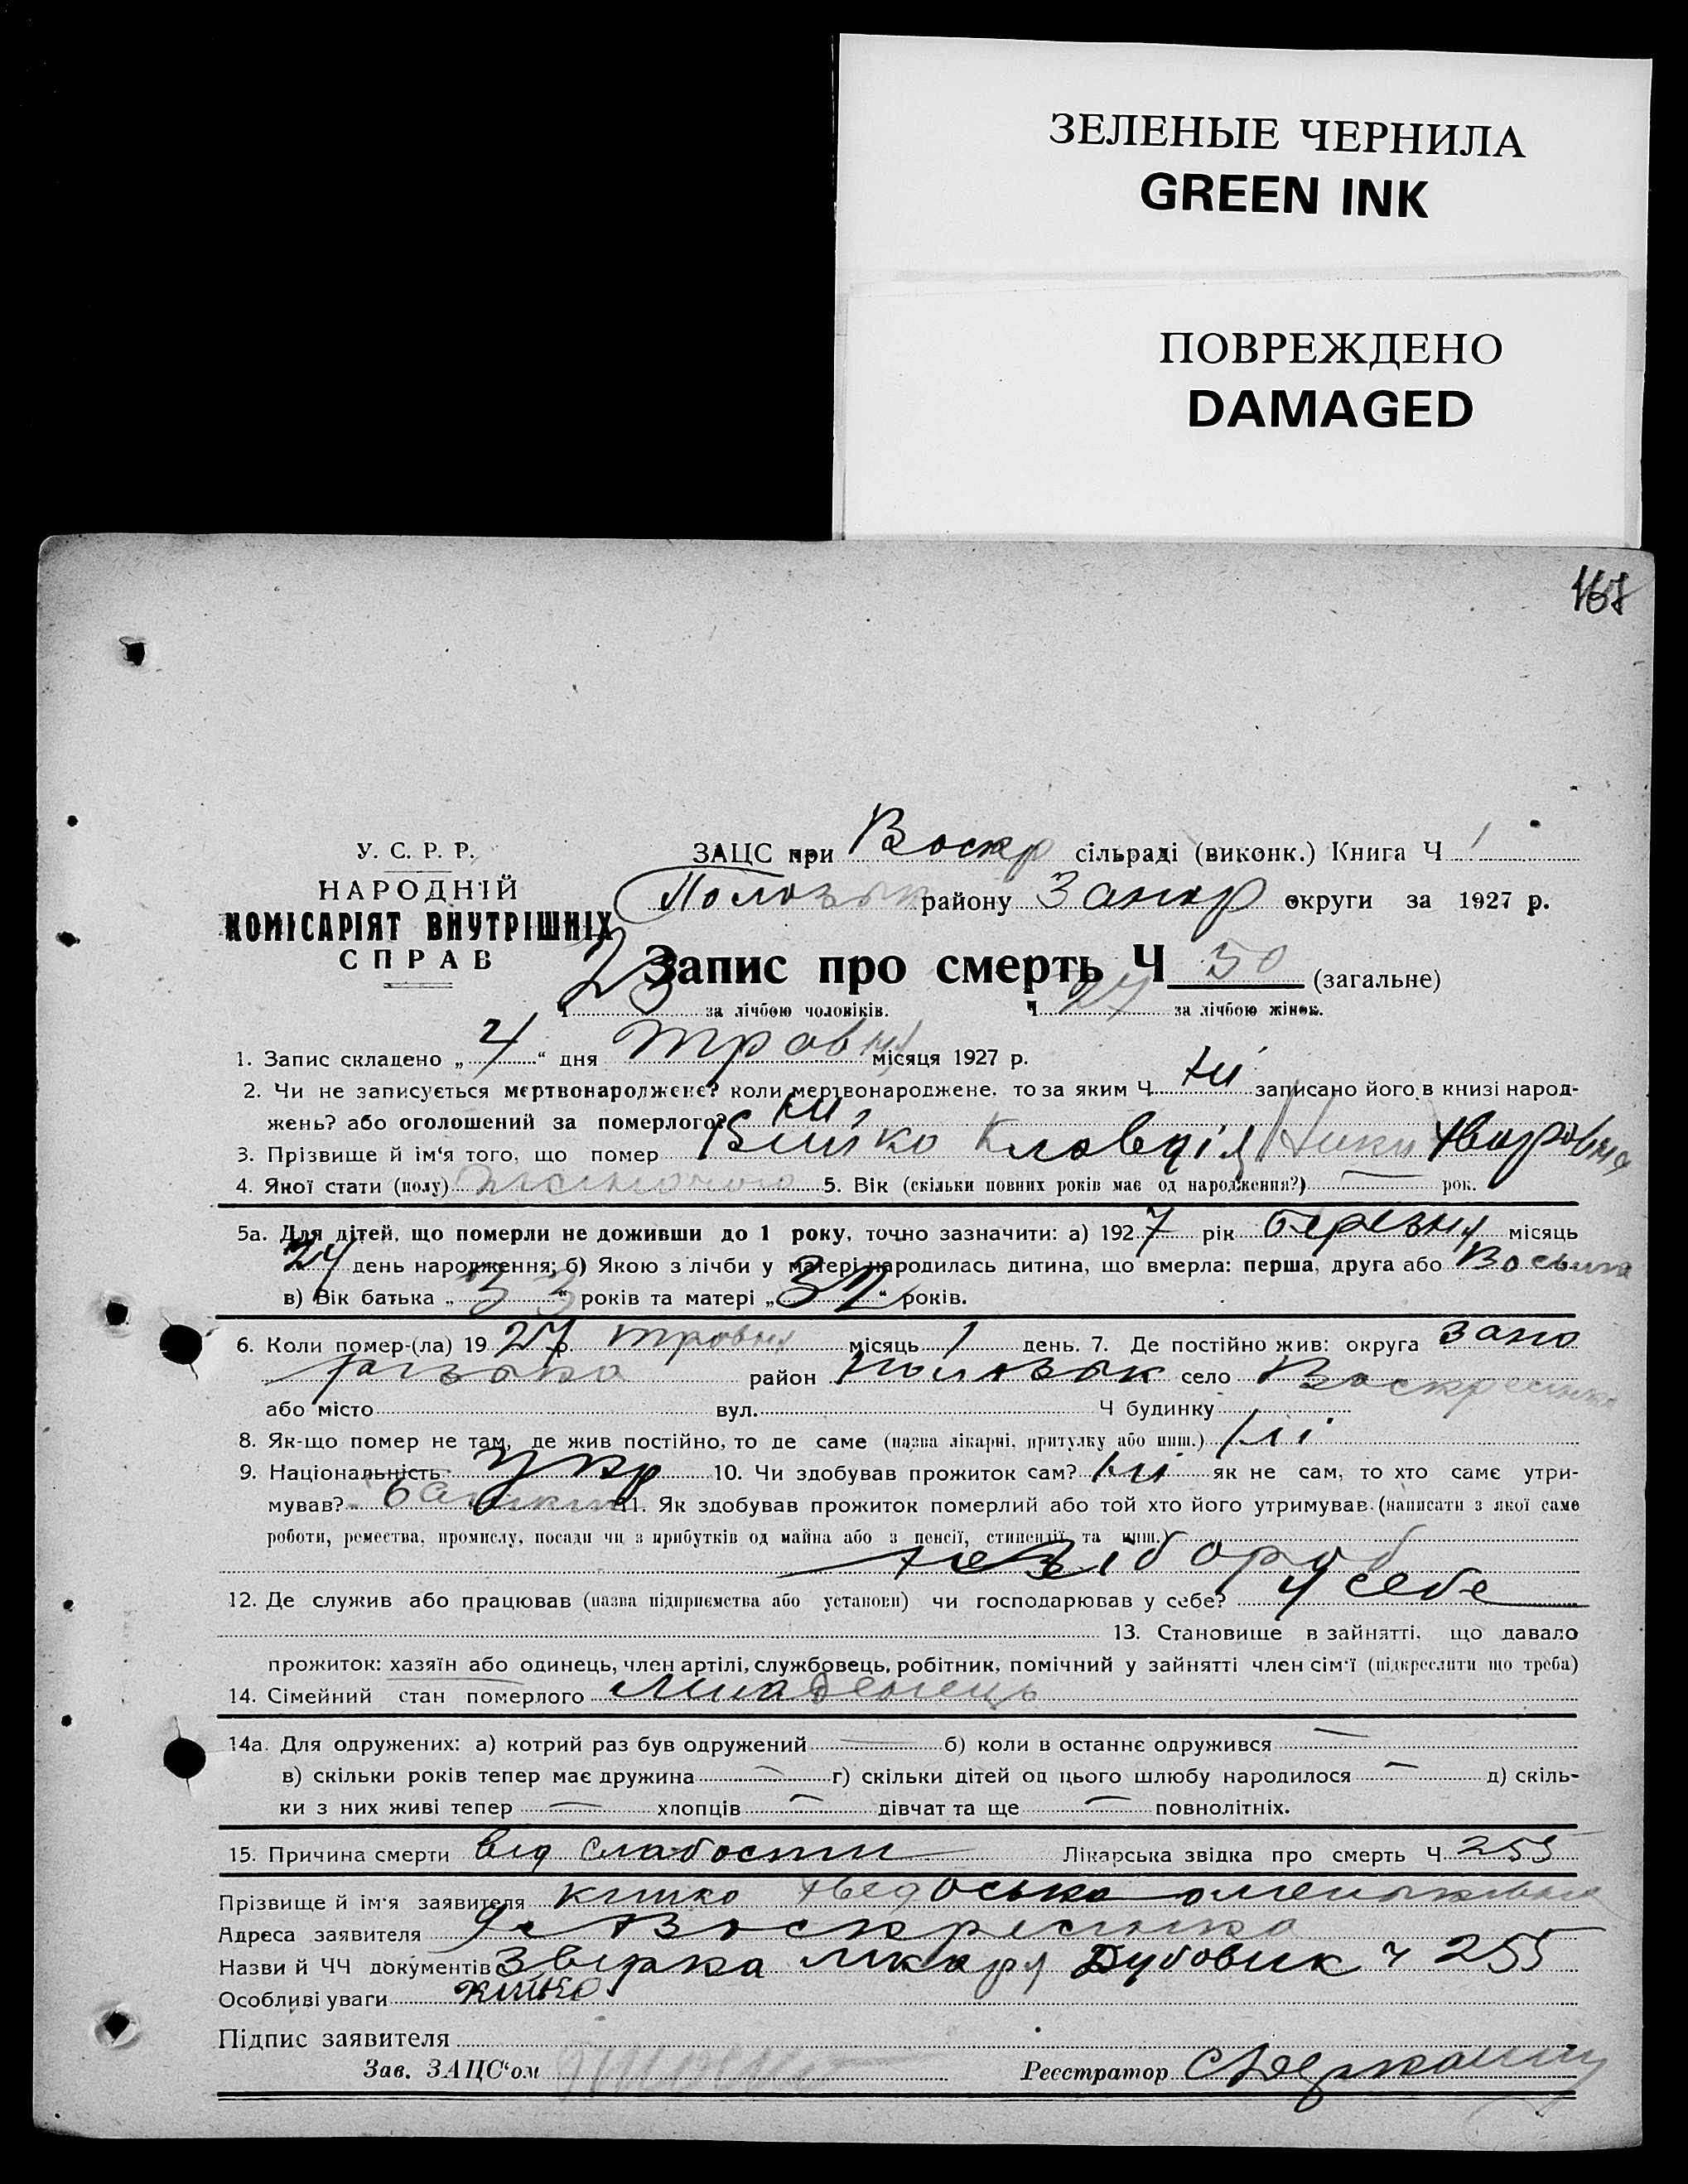 ЗЕЛЕНЫЕ ЧЕРНИЛА
GREEN INK
ПОВРЕЖДЕНО
DAMAGED
У. С. Р. Р.
НАРОДНІЙ
КОМІСАРІЯТ ВНУТРІШНІХ
СПРАВ
ЗАЦС при Воскр сільраді (виконк.) Книга Ч 1
Полозьк району Запор округи за 1927 р.
Запис про смерть Ч 50 (загальне)
Ч 23 за лічбою чоловіків. Ч 27 за лічбою жінок.
1. Запис складено „4“ дня травня місяця 1927 р.
2. Чи не записується мертвонароджене? коли мертвонароджене, то за яким Ч ні записано його в книзі народ-
жень? або оголошений за померлого? ні
3. Прізвище й ім‘я того, що помер Клавдія
4. Якої стати (полу) жіночою 5. Вік (скільки повних років має од народження?) — рок.
5а. Для дітей, що померли не доживши до 1 року, точно зазначити: а) 1927 рік березня місяць
24 день народження; б) Якою з лічби у матері народилась дитина, що вмерла: перша, друга або Восьма
в) Вік батька „33“ років та матері „32“ років.
6. Коли помер-(ла) 1927 р. травня місяць 1 день. 7. Де постійно жив: округа Запо
різька район Полозьк село Воскресенка
або місто вул. Ч будинку
8. Як-що помер не там, де жив постійно, то де саме (назва лікарні, притулку або инш.) ні
9. Національність Укр 10. Чи здобував прожиток сам? ні як не сам, то хто саме утри-
мував? батьки 11. Як здобував прожиток померлий або той хто його утримував (написати з якої саме
роботи, ремества, промислу, посади чи з прибутків од майна або з пенсії, стипендії та инш.)
хлібороб
12. Де служив або працював (назва підприємства або установи) чи господарював у себе? у себе
13. Становище в зайнятті, що давало
прожиток: хазяїн або одинець, член артілі, службовець, робітник, помічний у зайнятті член сім‘ї (підкреслити що треба)
14. Сімейний стан померлого Младенець
14а. Для одружених: а) котрий раз був одружений — б) коли в останнє одружився —
в) скільки років тепер має дружина — г) скільки дітей од цього шлюбу народилося — д) скіль-
ки з них живі тепер — хлопців — дівчат та ще — повнолітніх.
15. Причина смерти від слабости Лікарська звідка про смерть Ч 255
Прізвище й ім‘я заявителя
Адреса заявителя с Воскресенка
Назви й ЧЧ документів Звідка лікаря Дубовик ч 255
Особливі уваги
Підпис заявителя
Зав. ЗАЦС‘ом
Реєстратор